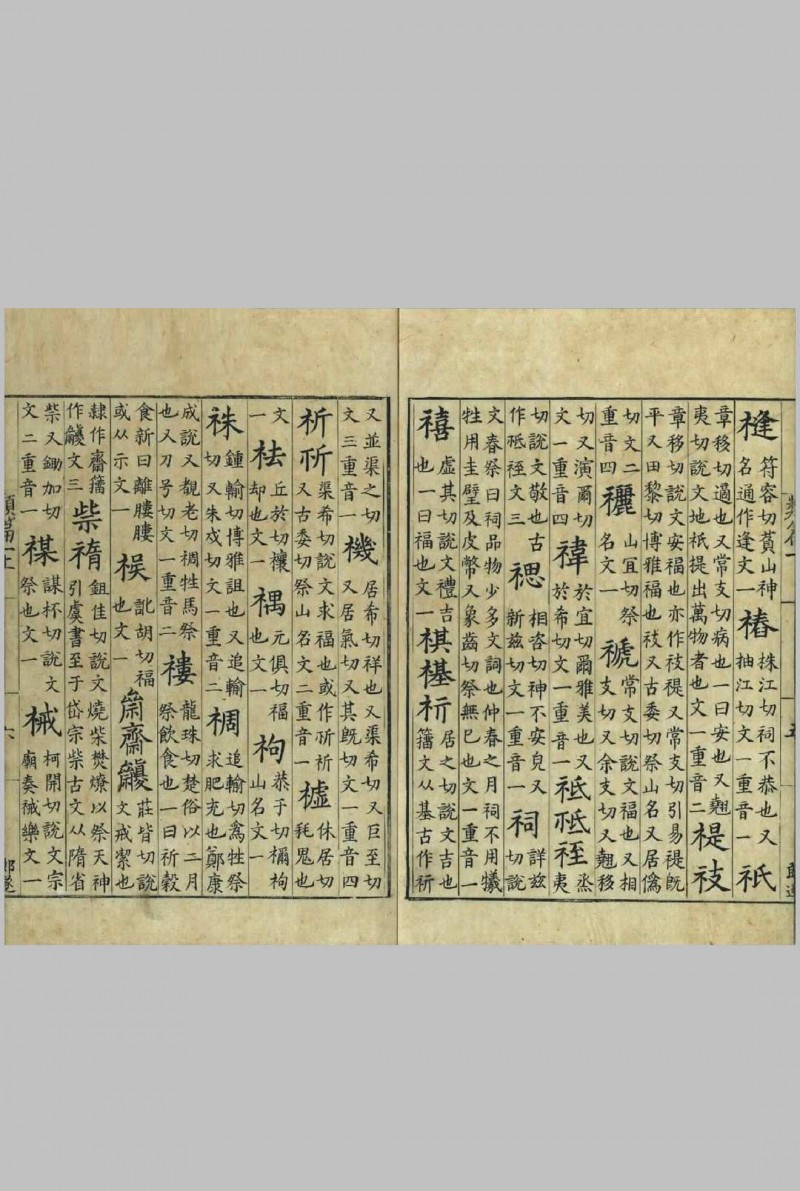 符容切蕡山神名通作逢文一 抹江切祠不恭也又抽江切文一重音一 祇
章移切適也又常支切病也一曰安也又翹夷切說文地祇提出萬物者也文一重音二 禔
章移切說文安福也亦作禔又常支切引易禔旣平又田黎切博雅福也又古委切祭山名又居僞
切文二重音四 山宜切祭名文一 禠 常支切說文福也又相支切又余支切又翹移
切又演爾切文一重音四 禕 於宜切爾雅美也又於希切文一重音一 祗 烝夷
切說文敬也古作文三 禗 相咨切神不安皃又新茲切文一重音一 祠 詳茲切說
文春祭曰祠品物少多文詞也仲春之月祠不用犧牲用圭璧及皮幣又象齒切祭無巳也文一重音一
禧 虛其切說文禮吉也一曰福也文一 祺禥祈 居之切說文吉也籒文从基古作祈
又並渠之切文三重音一 禨 居希切祥也又渠希切又巨至切又居氣切又其旣切文一重音四
祈 渠希切說文求福也或作祈又古委切祭山名文二重音一 休居切秏鬼也
文一 祛 丘於切禳却也文一 禑 元俱切福也文一 恭于切山名文一
祩 鍾輸切博雅詛也又追輸切又朱戍切文一重音二 禂 追輸切禽牲祭求肥充也鄭康
成說又覩老切禂牲馬祭也又刀号切文一重音二 䄛 龍珠切楚俗以二月祭飲食也一曰祈穀
食新曰離膢膢或从示文一 祦 訛胡切福也文一 齋 莊皆切說文戒潔也
隸作齋籒作文三 祡 鉏佳切說文燒柴焚燎以祭天神引虞書至于岱宗祡古文从隋省
祡又鋤加切文二重音一 禖 謀杯切說文祭也文一 祴 柯開切說文宗廟奏祴樂文一
類篇一上
六